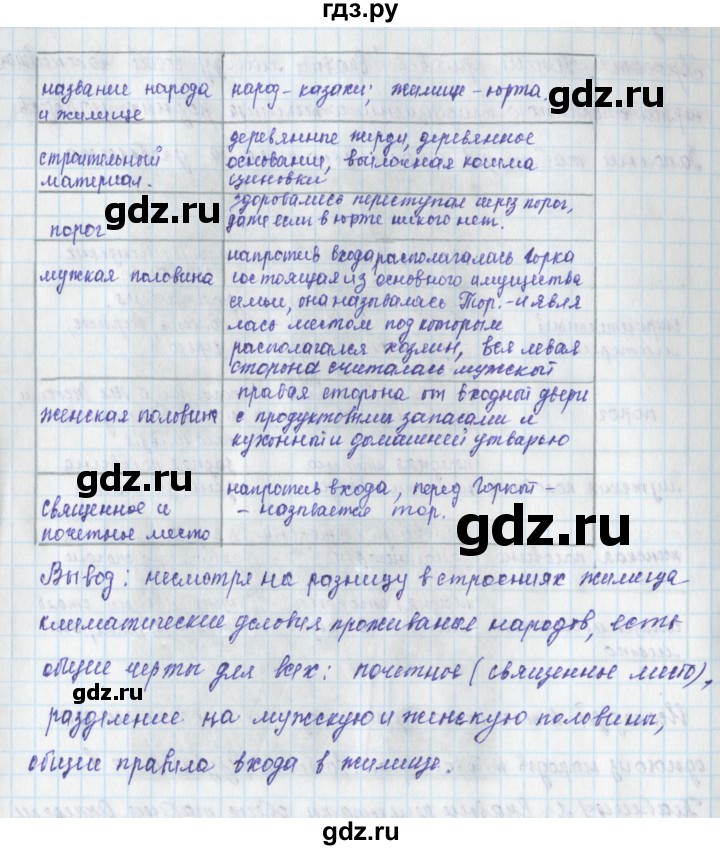 гдз.ру
название народа
и жилище
народ - казахи; жилище - юрта.
строительный
материал.
деревянные жерди, деревянное
основание, войлочная кошма
циновки
gdz.ru
порог
здоровались переступая через порог,
даже если в юрте никого нет.
gdz.ru
мужская половина
напротив входа располагалась Горка
состоящая из основного имущества
семьи, она называлась Тор. - и явля
лась местом под которым
располагался хозяин, вся левая
сторона считалась мужской
женская половина
правая сторона от входной двери
с продуктовыми запасами и
кухонной и домашней утварью
gdz.ru
священное и
почетное место
напротив входа, перед Горкой -
- называется тор.
gdz.ru
Вывод: несмотря на разницу в строениях жилища
климатические условия проживания народов, есть
общие черты для всех: почетное (священное место),
gdz.ru
разделение на мужскую и женскую половины,
общие правила входа в жилище.
gdz.ru
gdz.ru